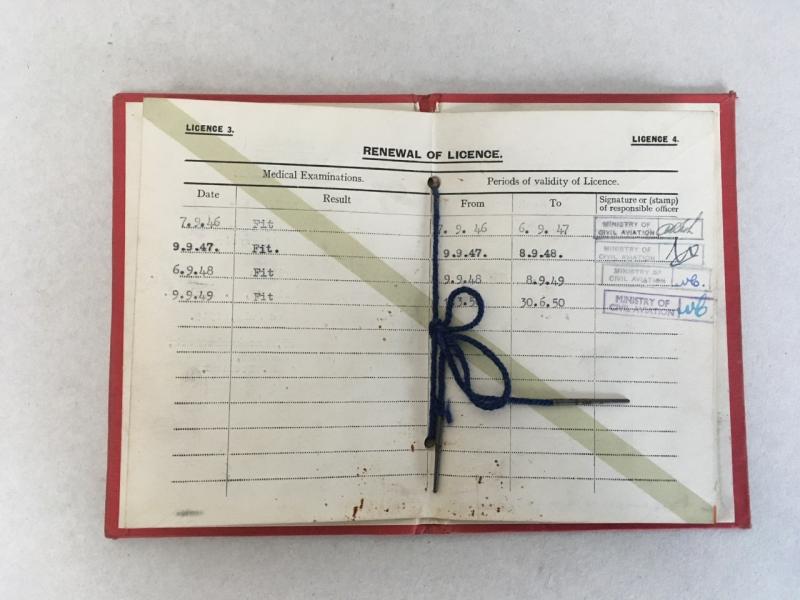 LICENCE 3.
LICENCE 4.
RENEWAL OF LICENCE.
Medical Examinations.
Periods of validity of Licence.
Date Result From To Signature or (stamp) of responsible officer
7.9.46 Fit 7. 9. 46 6. 9. 47 MINISTRY OF CIVIL AVIATION
9.9.47. Fit. 9.9.47. 8.9.48. MINISTRY OF CIVIL AVIATION
6.9.48 Fit 9.9.48 8.9.49 MINISTRY OF CIVIL AVIATION
9.9.49 Fit 30.6.50 MINISTRY OF CIVIL AVIATION